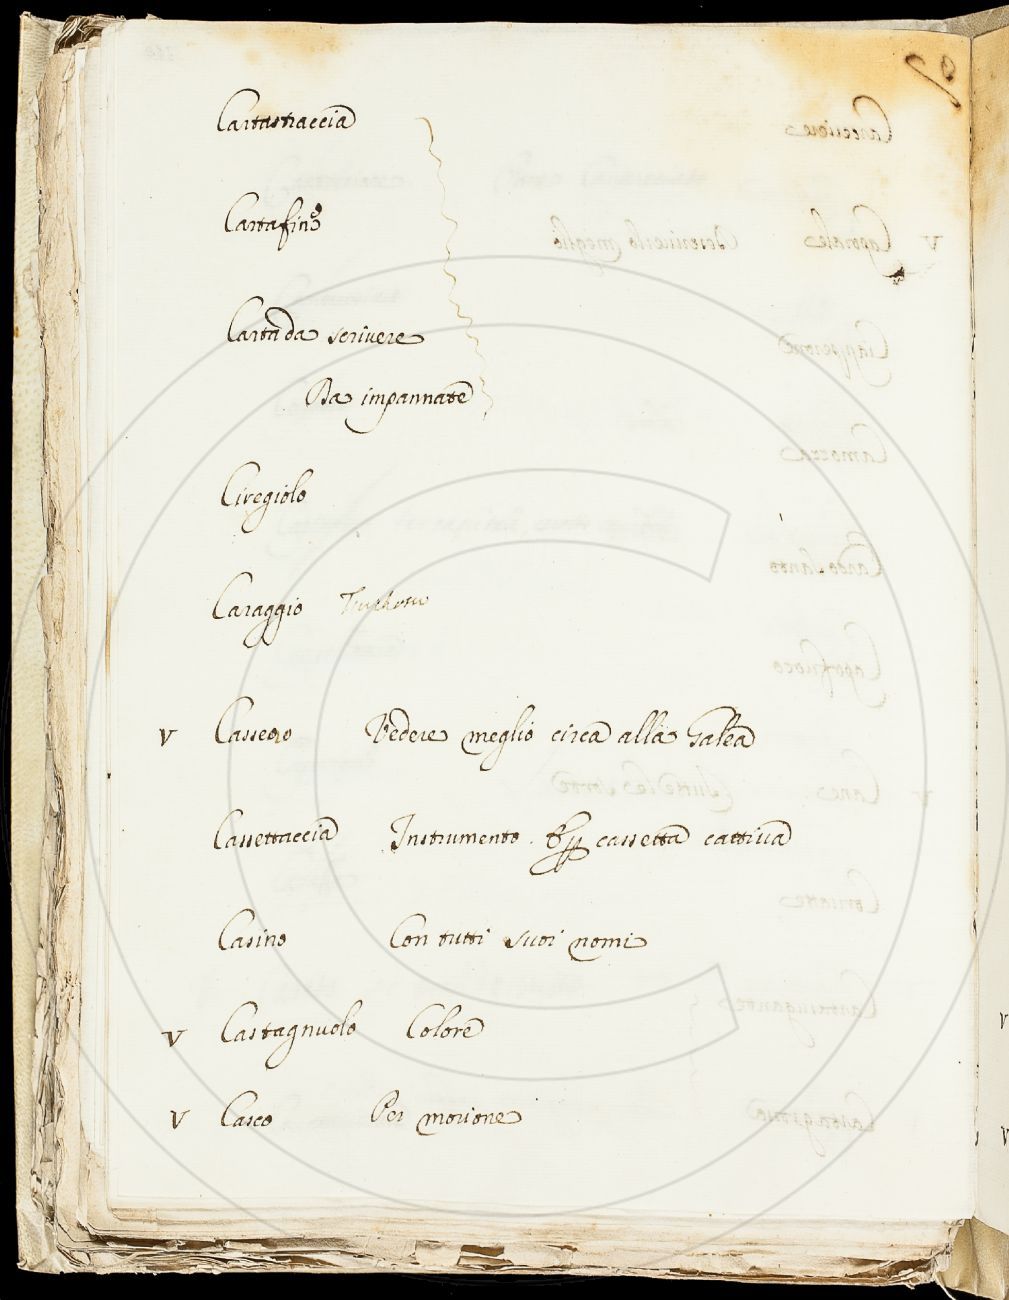 Cartastraccia
Cartafine
Carta da scrivere
Da impannate
Ciregiolo
Caraggio
V Cassero Vedere meglio circa alla Galea
Cassettaccia Instrumento cassetta cattiua
Casino Con tutti suoi nomi
V Castagnuolo Colore
V Casco Per morione